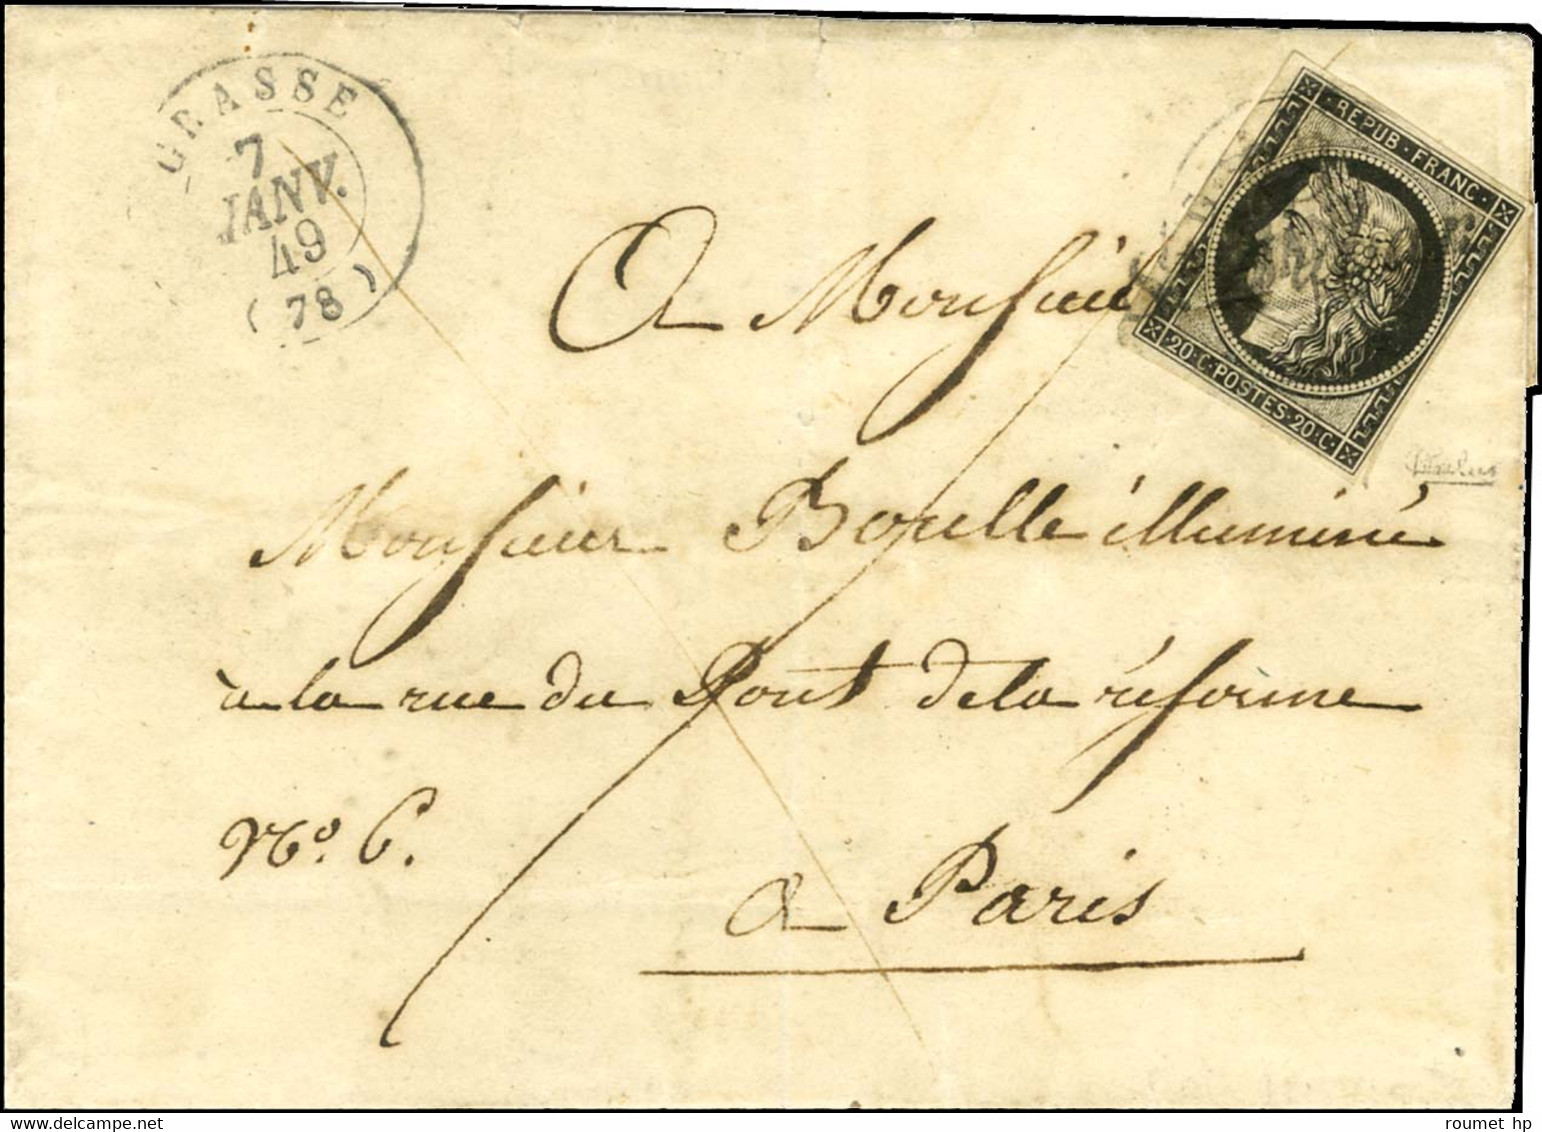 GRASSE
7
JANV.
49
(78)
REPUB · FRANC ·
20 · C · POSTES · 20 · C ·
A Monsieur
Monsieur Boulle illuminé
à la rue du Pont de la réforme
No. 6.
a Paris
roumet hp